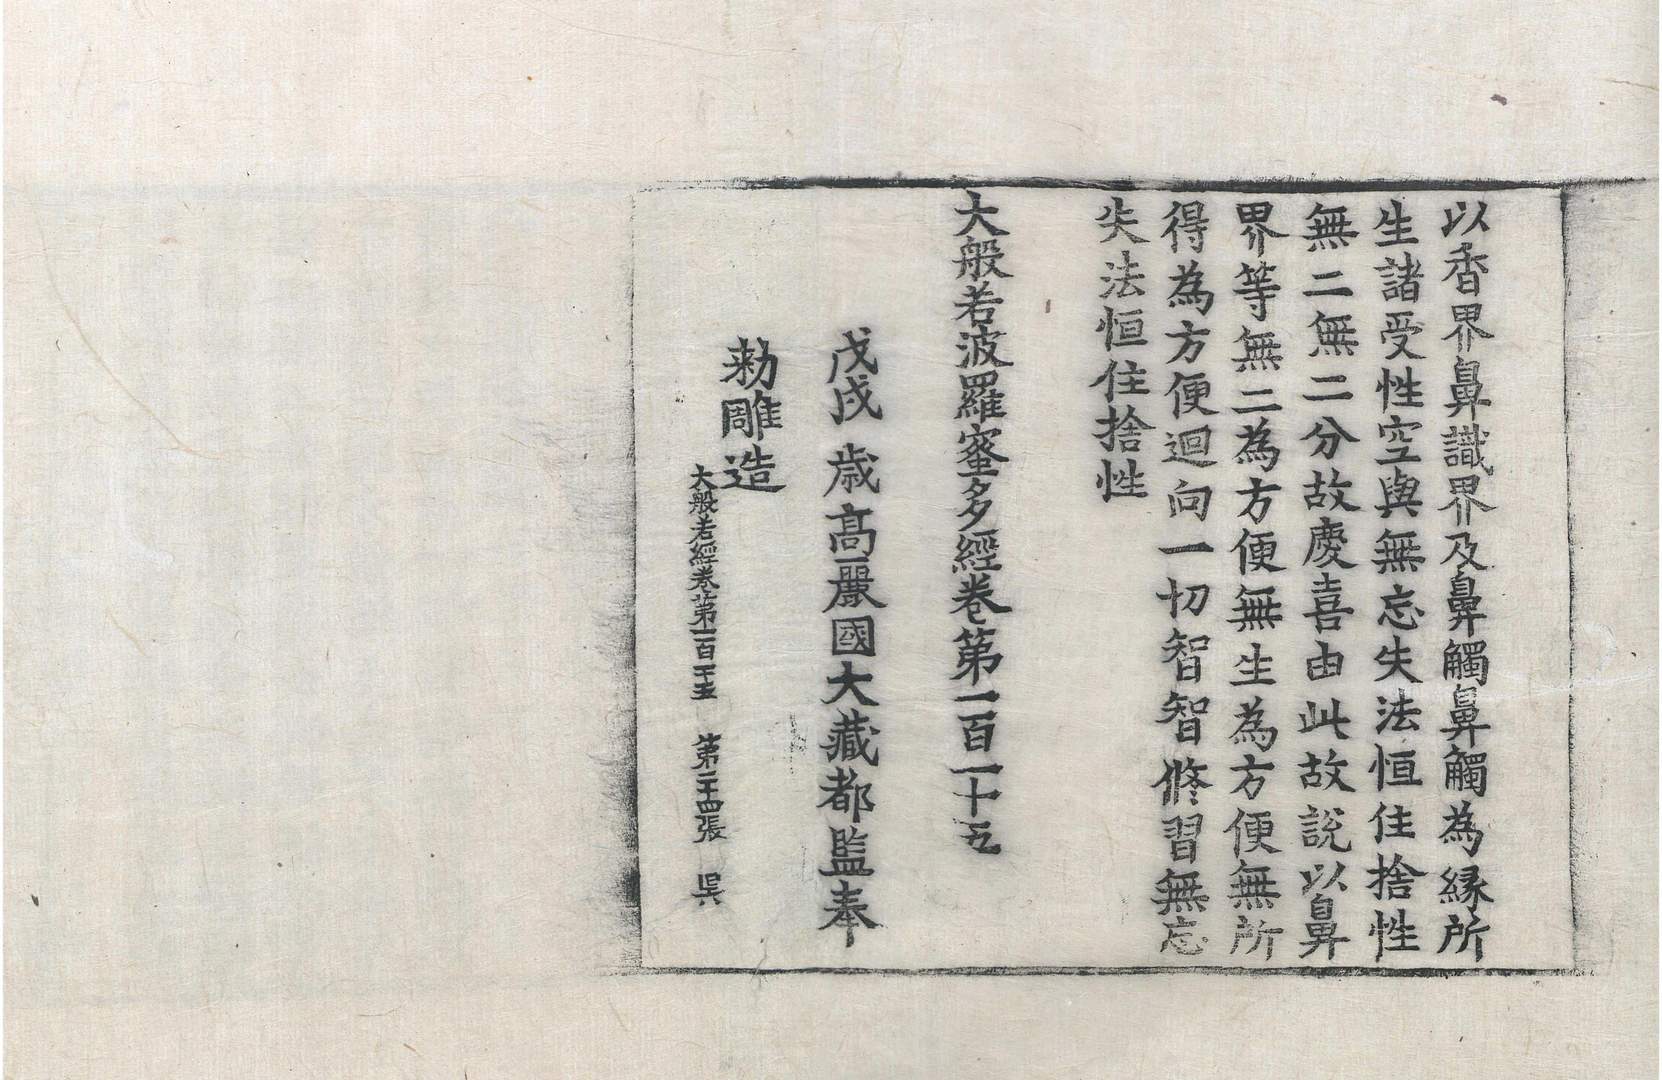 以香界鼻識界及鼻觸鼻觸為縁所
生諸受性空與無忘失法恒住捨性
無二無二分故慶喜由此故說以鼻
界等無二為方便無生為方便無所
得為方便迴向一切智智修習無忘
失法恒住捨性
大般若波羅蜜多經卷第一百一十五
戊戌歳高麗國大藏都監奉
勅雕造
大般若經卷第一百一十五 第二十四張 昃